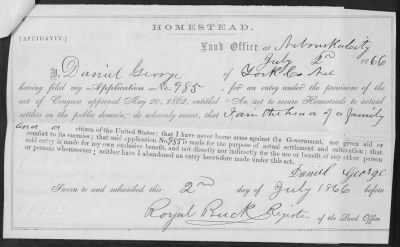 HOMESTEAD.
[AFFIDAVIT.]
Land Office at Nebraska City
July 2nd 1866
I, Daniel George of York Co Neb
having filed my Application No. 985 for an entry under the provisions of the
act of Congress approved May 20, 1862, entitled "An act to secure Homesteads to actual
settlers on the public domain," do solemnly swear, that I am the head of a family
and a citizen of the United States; that I have never borne arms against the Government, nor given aid or
comfort to its enemies; that said application No. 985 is made for the purpose of actual settlement and cultivation; that
said entry is made for my own exclusive benefit, and not directly nor indirectly for the use or benefit of any other person
or persons whomsoever; neither have I abandoned an entry heretofore made under this act.
Daniel George
Sworn to and subscribed this 2nd day of July 1866 before
Royal Buck Register of the Land Office